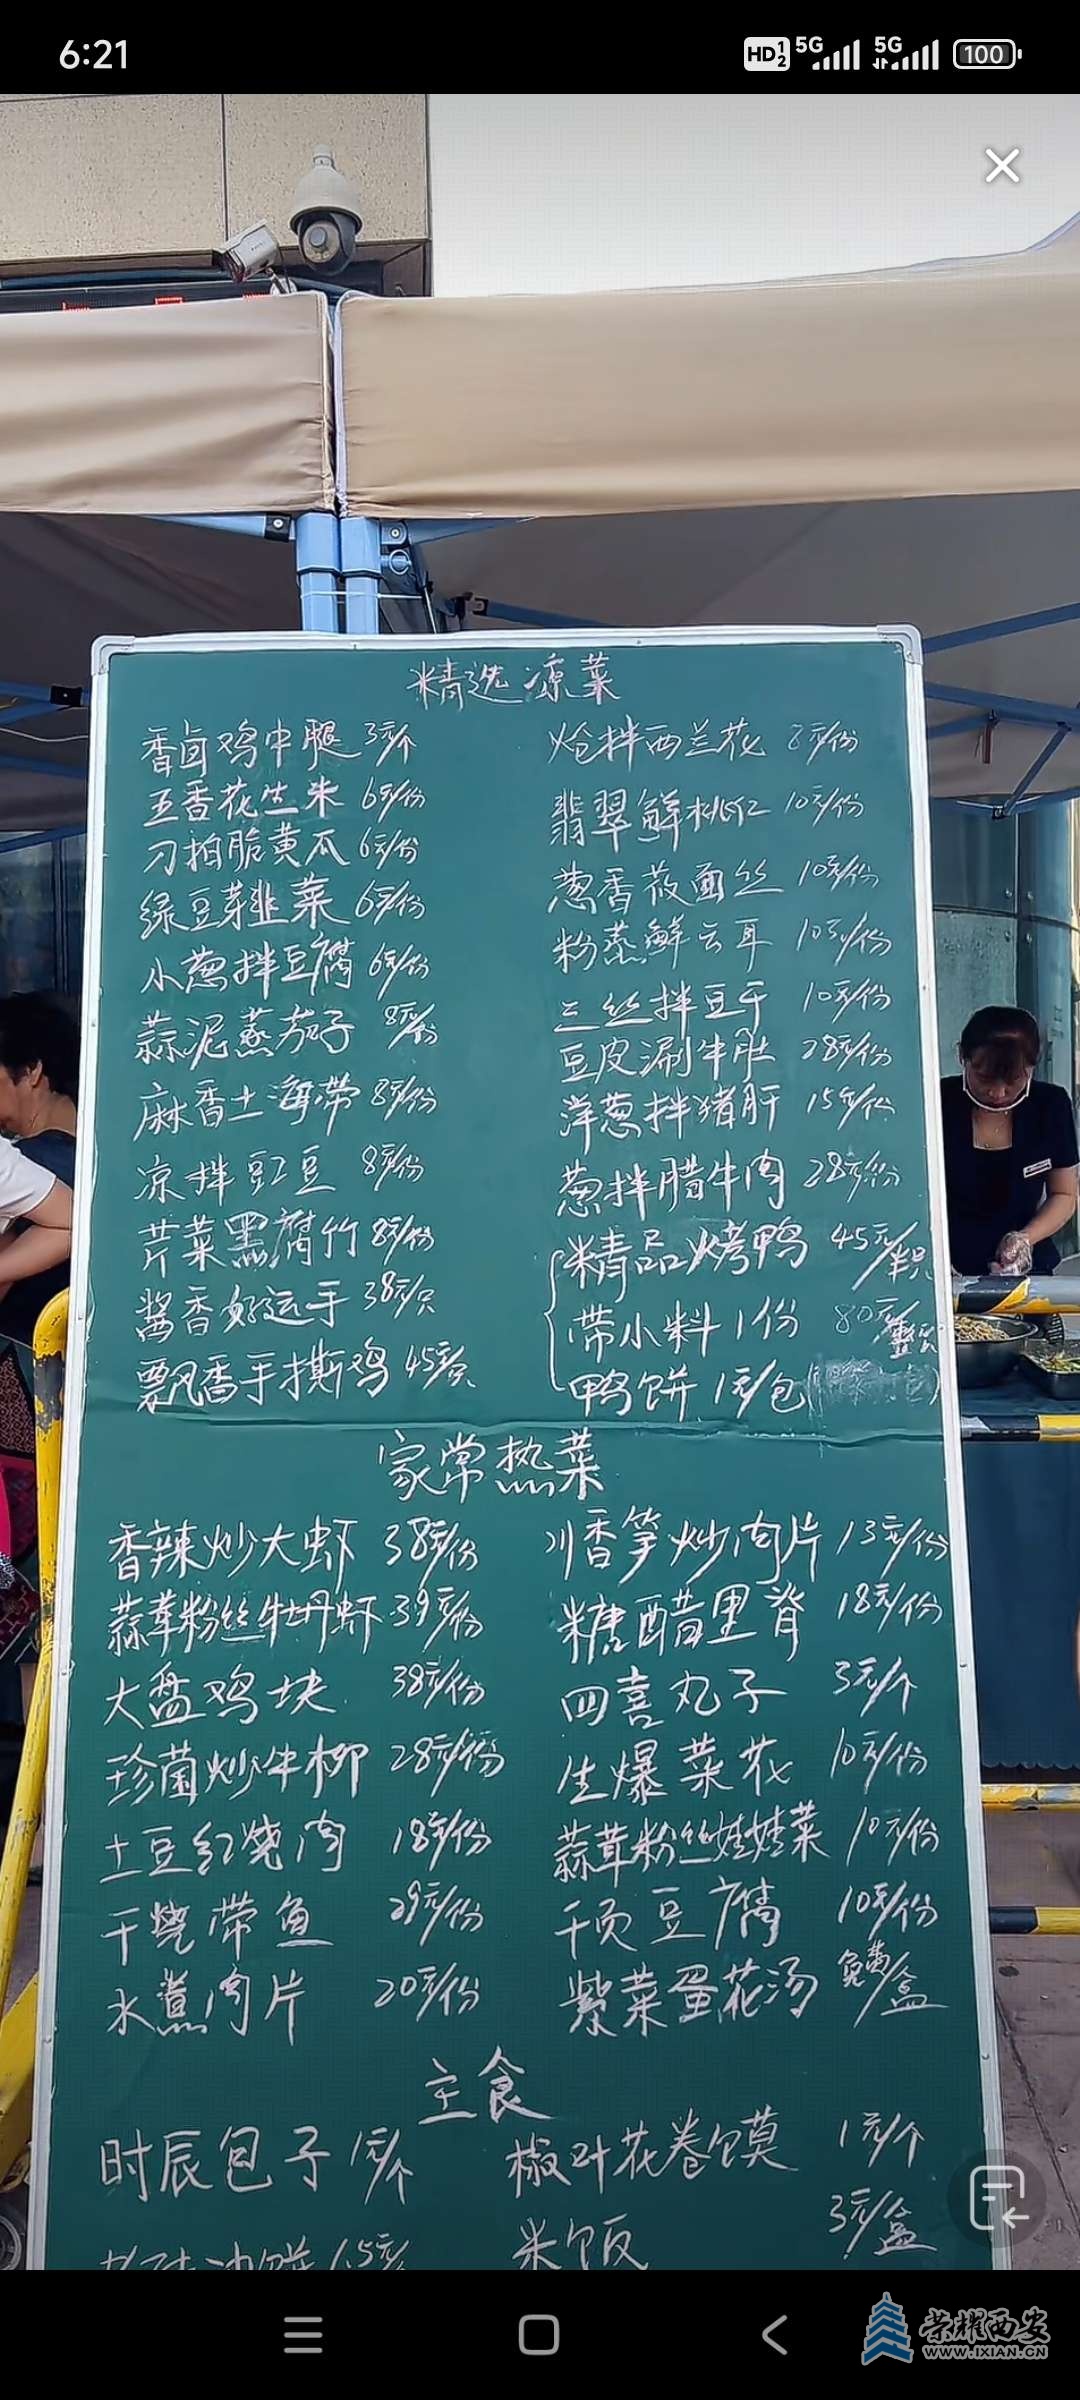 6:21
HD 1 2 5G 5G 100
精选凉菜
香卤鸡中腿 3元/个
五香花生米 6元/份
刀拍脆黄瓜 6元/份
绿豆芽韭菜 6元/份
小葱拌豆腐 6元/份
蒜泥蒸茄子 8元/份
麻香土海带 8元/份
凉拌豇豆 8元/份
芹菜黑腐竹 8元/份
酱香好运手 38元/只
飘香手撕鸡 45元/只
炝拌西兰花 8元/份
翡翠鲜桃仁 10元/份
葱香莜面丝 10元/份
粉蒸鲜云耳 10元/份
三丝拌豆干 10元/份
豆皮涮牛肚 28元/份
洋葱拌猪肝 15元/份
葱拌腊牛肉 28元/份
精品烤鸭 45元/半只
带小料1份 80元/整只
鸭饼1元/包
家常热菜
香辣炒大虾 38元/份
蒜茸粉丝牡丹虾 39元/份
大盘鸡块 38元/份
珍菌炒牛柳 28元/份
土豆红烧肉 18元/份
干烧带鱼 29元/份
水煮肉片 20元/份
川香笋炒肉片 13元/份
糖醋里脊 18元/份
四喜丸子 3元/个
生爆菜花 10元/份
蒜茸粉丝娃娃菜 10元/份
千页豆腐 10元/份
紫菜蛋花汤 免费/盒
主食
时辰包子 1元/个
椒叶花卷馍 1元/个
1.5元/
米饭 3元/盒
荣耀西安
WWW.IXIAN.CN